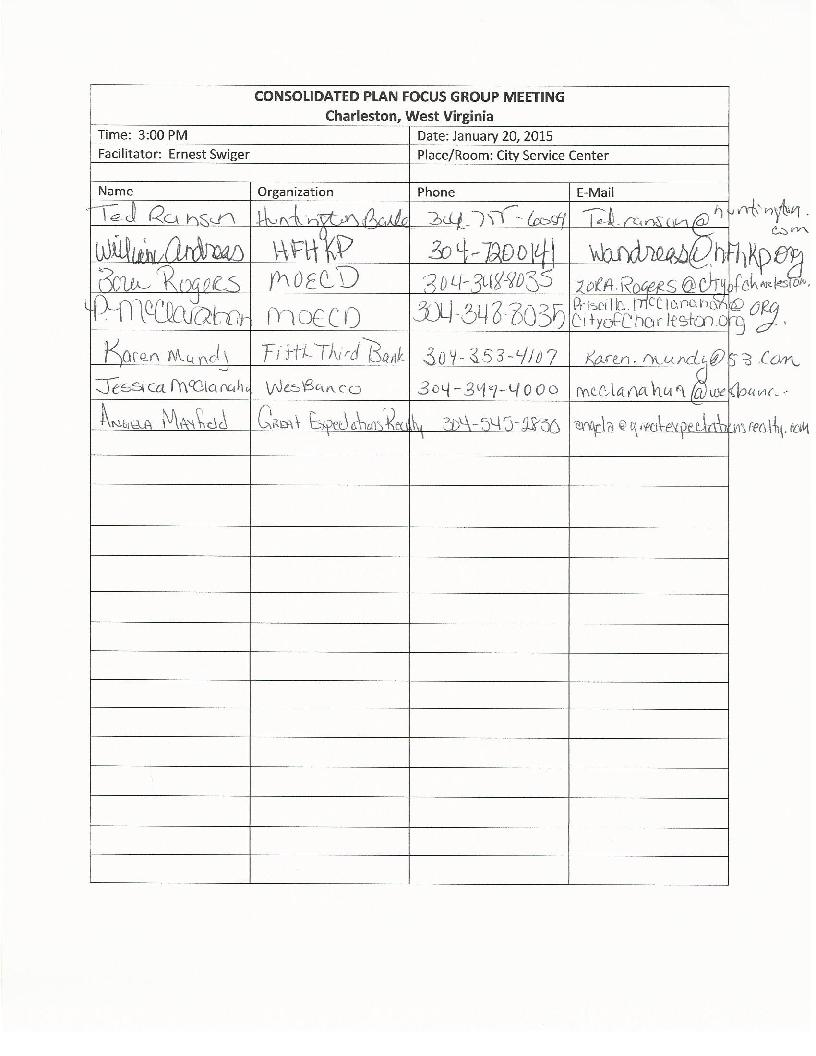 CONSOLIDATED PLAN FOCUS GROUP MEETING
Charleston, West Virginia
Time: 3:00 PM Date: January 20, 2015
Facilitator: Ernest Swiger Place/Room: City Service Center
Name Organization Phone E-Mail
Ted Ranson Huntington Ted.ranson@huntington.com
William Andreas HFHKP 304-7200141 wandreas@hfhkp.org
Rogers MOECD 304-348-8035 ZORA.ROGERS@cityofcharleston.ORG
P. McClanahan MOECD 304-348-8035 Priscilla.McClanahan@
Cityofcharleston.org
Karen Mundy Fifth Third Bank 304-353-4107 Karen.mundy@53.com
Jessica McClanahan WesBanco 304-347-4000
ANGELA MAYfield GREAT Expectations Realty 304-545-2836 angela@greatexpectationsrealty.com